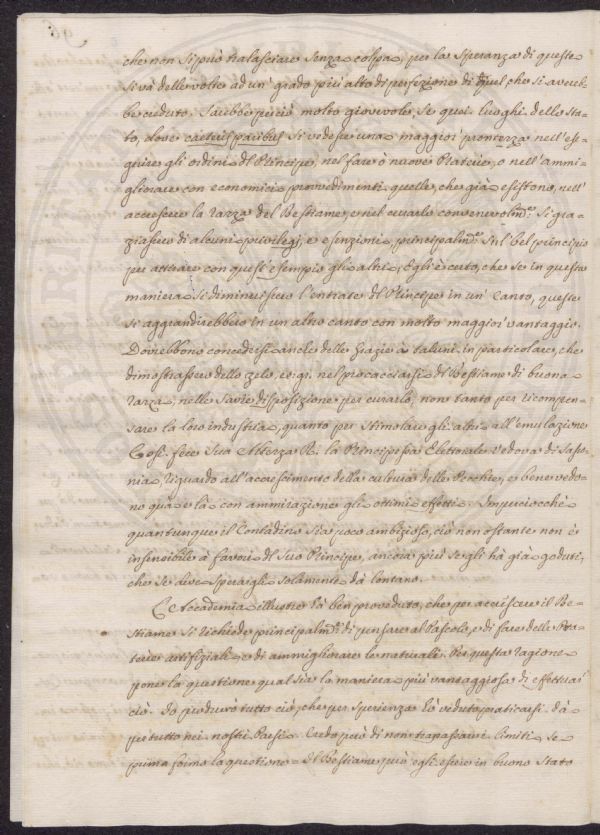 che non si può tralasciare senza colpa, per la speranza di queste
si và delle volte ad un' grado più alto di perfezione di quel che si avreb-
be creduto. Sarebbe perciò molto giovevole, se quei luoghi dello Sta-
to, dove caeteris paribus si vedesse una maggior prontezza nell'ese-
guire gli ordini del Principe, nel fare ò nuove Praterie, o nell'ammi-
gliorare con economici provvedimenti quelle, che già esistono, nell'
accrescere la razza del Bestiame, e nel curarlo convenevolm.e si gra-
ziassero di alcuni privilegj, e esenzioni, principalm.e sul bel principio
per attirare con questi esempio gli altri, Egli è certo, che se in questa
maniera si diminuissero l'entrate del Principe in un' Canto, queste
si aggrandirebbero in un altro canto con molto maggior vantaggio.
Dovrebbono concedersi anche delle Grazie à taluni in particolare, che
dimostrassero dello zelo, e.gr. nel procacciarsi del Bestiame di buona
razza, nelle savie disposizione per curarlo, non tanto per ricompen-
sare la loro industria, quanto per stimolare gli altri all'emulazione
Così fece Sua Altezza R. la Principessa Elettorale Vedova di Sasso-
nia riguardo all'accrescimento della cultura delle Pecchie, e bene vedo-
no quà e là con ammirazione gli ottimi effetti. Imperciocchè
quantunque il Contadino sia poco ambizioso, ciò non ostante non è
insensibile à favori del suo Principe, ancora più se gli hà già goduti,
che se deve sperargli solamente dà lontano.
L'Accademia illustre dà ben proveduto, che per accrescere il Be-
stiame si richiede principalm.e di pensare al Pascolo, e di fare delle Pra-
terie artifiziali e di ammigliorare le naturali. Per questa ragione
pone la questione qual sia la maniera più vantaggiosa di effettuar
ciò. Io produrò tutto ciò, che per sperienza hò veduto praticarsi dà
per tutto nei nostri Paesi. Credo però di non trapassare i limiti se
prima formo la questione = Il Bestiame può egli essere in buono stato